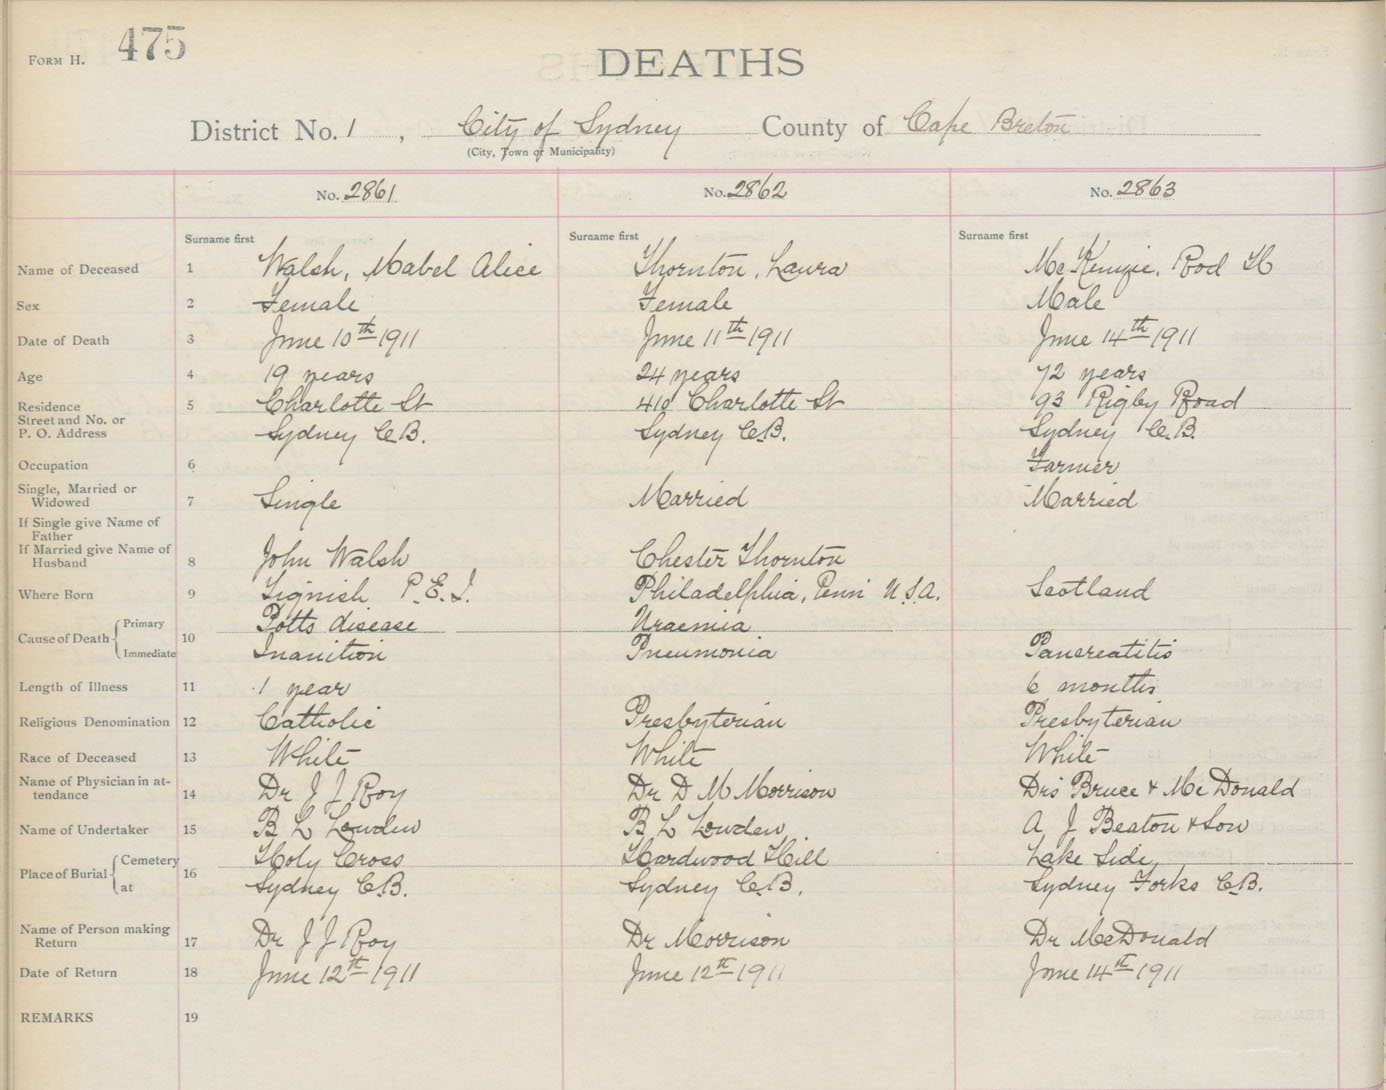 FORM H. 475
DEATHS
District No. 1, City of Sydney County of Cape Breton
(City, Town or Municipality)
No. 2861 No. 2862 No. 2863
Surname first Surname first Surname first
Name of Deceased 1 Walsh, Mabel Alice Thornton, Laura McKenzie, Rod H
Sex 2 Female Female Male
Date of Death 3 June 10th 1911 June 11th 1911 June 14th 1911
Age 4 19 years 24 years 72 years
Residence 5 Charlotte St 410 Charlotte St 93 Rigby Road
Street and No. or
P. O. Address Sydney C.B. Sydney C.B. Sydney C.B.
Occupation 6 Farmer
Single, Married or
Widowed 7 Single Married Married
If Single give Name of
Father
If Married give Name of
Husband 8 John Walsh Chester Thornton
Where Born 9 Tignish P.E.I. Philadelphia, Penn U.S.A. Scotland
Primary Potts disease Uraemia
Cause of Death 10
Immediate Inanition Pneumonia Pancreatitis
Length of Illness 11 1 year 6 months
Religious Denomination 12 Catholic Presbyterian Presbyterian
Race of Deceased 13 White White White
Name of Physician in at-
tendance 14 Dr J J Roy Dr D M Morrison Drs Bruce + McDonald
Name of Undertaker 15 B L Lowden B L Lowden A J Beaton + Son
Cemetery Holy Cross Hardwood Hill Lake Side
Place of Burial 16
at Sydney C.B. Sydney C.B. Sydney Forks C.B.
Name of Person making
Return 17 Dr J J Roy Dr Morrison Dr McDonald
Date of Return 18 June 12th 1911 June 12th 1911 June 14th 1911
REMARKS 19